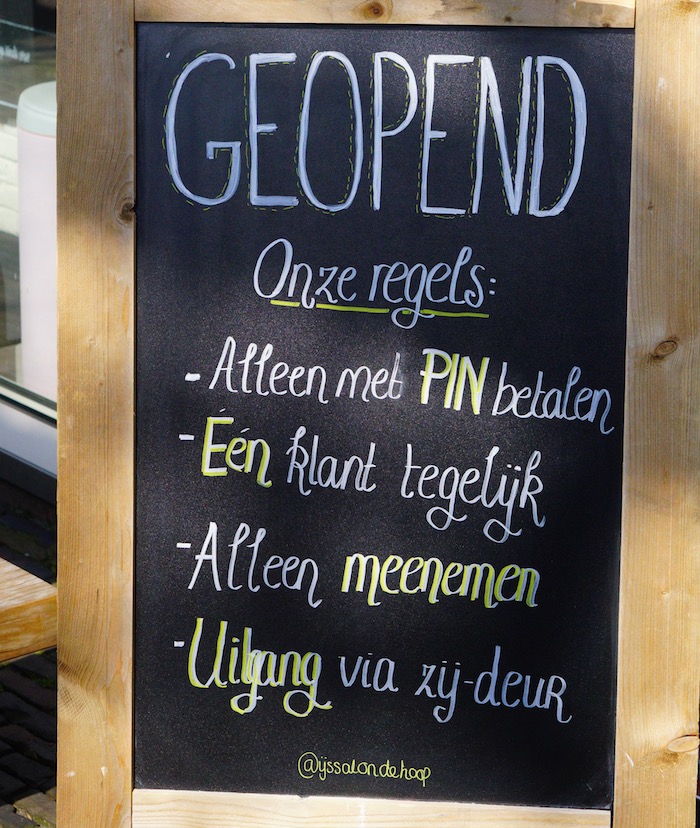 GEOPEND
Onze regels:
- Alleen met PIN betalen
- Één klant tegelijk
- Alleen meenemen
- Uitgang via zij-deur
@ijssalondehoop